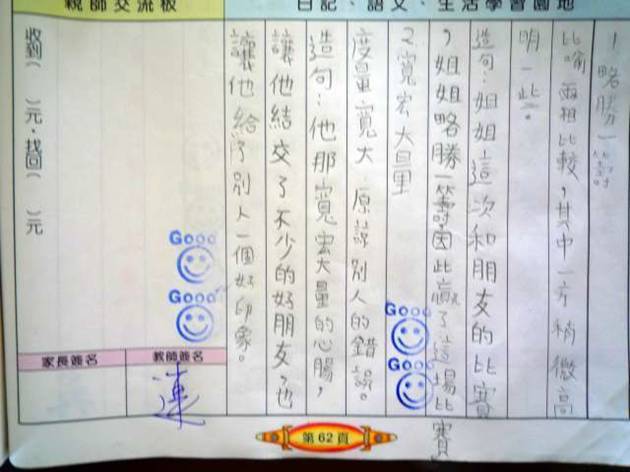 日記、語文、生活學習園地
1略勝一籌
比喻兩相比較,其中一方稍微高
明一些。
造句:姐姐這次和朋友的比賽
,姐姐略勝一籌因此贏了這場比賽
2寬宏大量
度量寬大 原諒別人的錯誤。
造句:他那寬宏大量的心腸,
讓他結交了不少的好朋友了也
讓他給了別人一個好印象。
親師交流板
Good
Good
Good
Good
收到( )元,找回( )元
教師簽名
連
家長簽名
第62頁